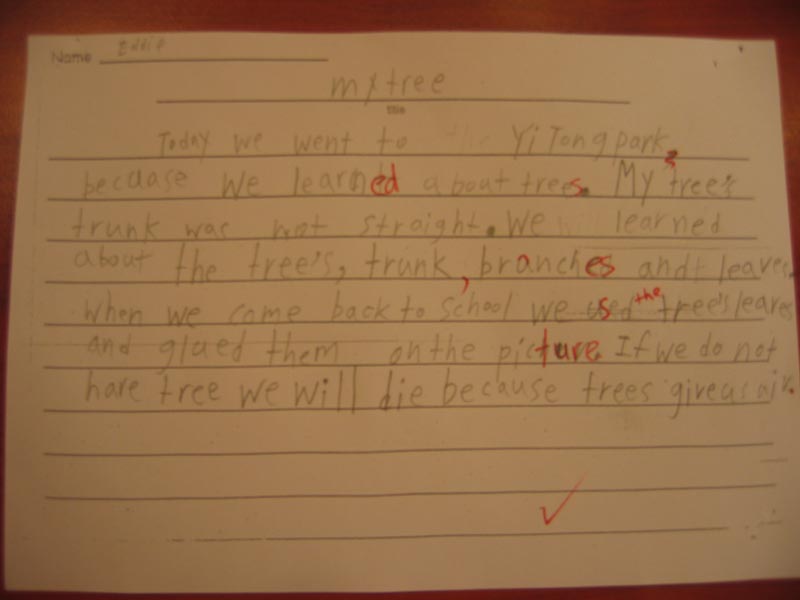 Name Eddie
my tree
title
Today we went to the YiTong park,
becuase We learned about trees. My tree's
trunk was not straight. We learned
about the tree's, trunk, branches and leaves.
When we come back to school we used the tree's leaves
and glued them on the picture. If we do not
have tree we will die because trees give us air.